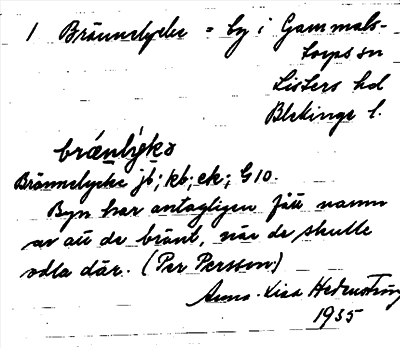 1 Brännelycke = by i Gammals-
torps sn
Listers hd
Blekinge l.
brǽnlýkə
Brännelycke jb; kb; ek; G10.
Byn har antagligen fått namn
av att de bränt, när de skulle
odla där. (Per Persson)
Anna-Lisa Hedenström
1935